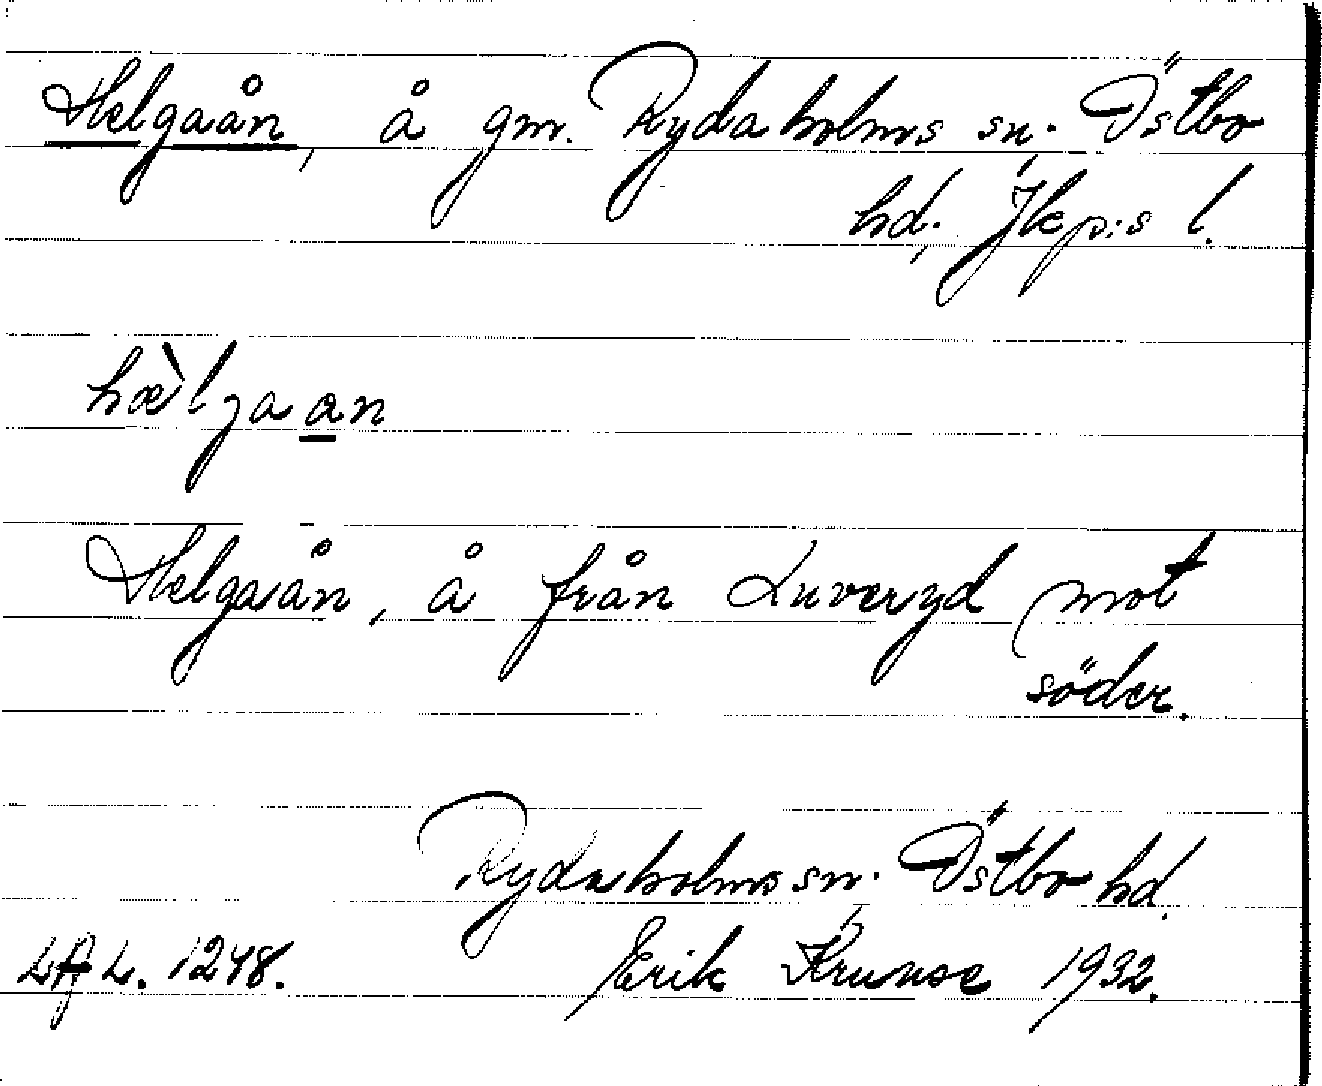 Helgaån, å gm. Rydaholms sn. Östbo
hd, Jkp:s l.
hæ̀lgaan
Helgaån, å från Luveryd mot
söder.
Rydaholms sn. Östbo hd.
LAL. 1248. Erik Kruuse 1932.